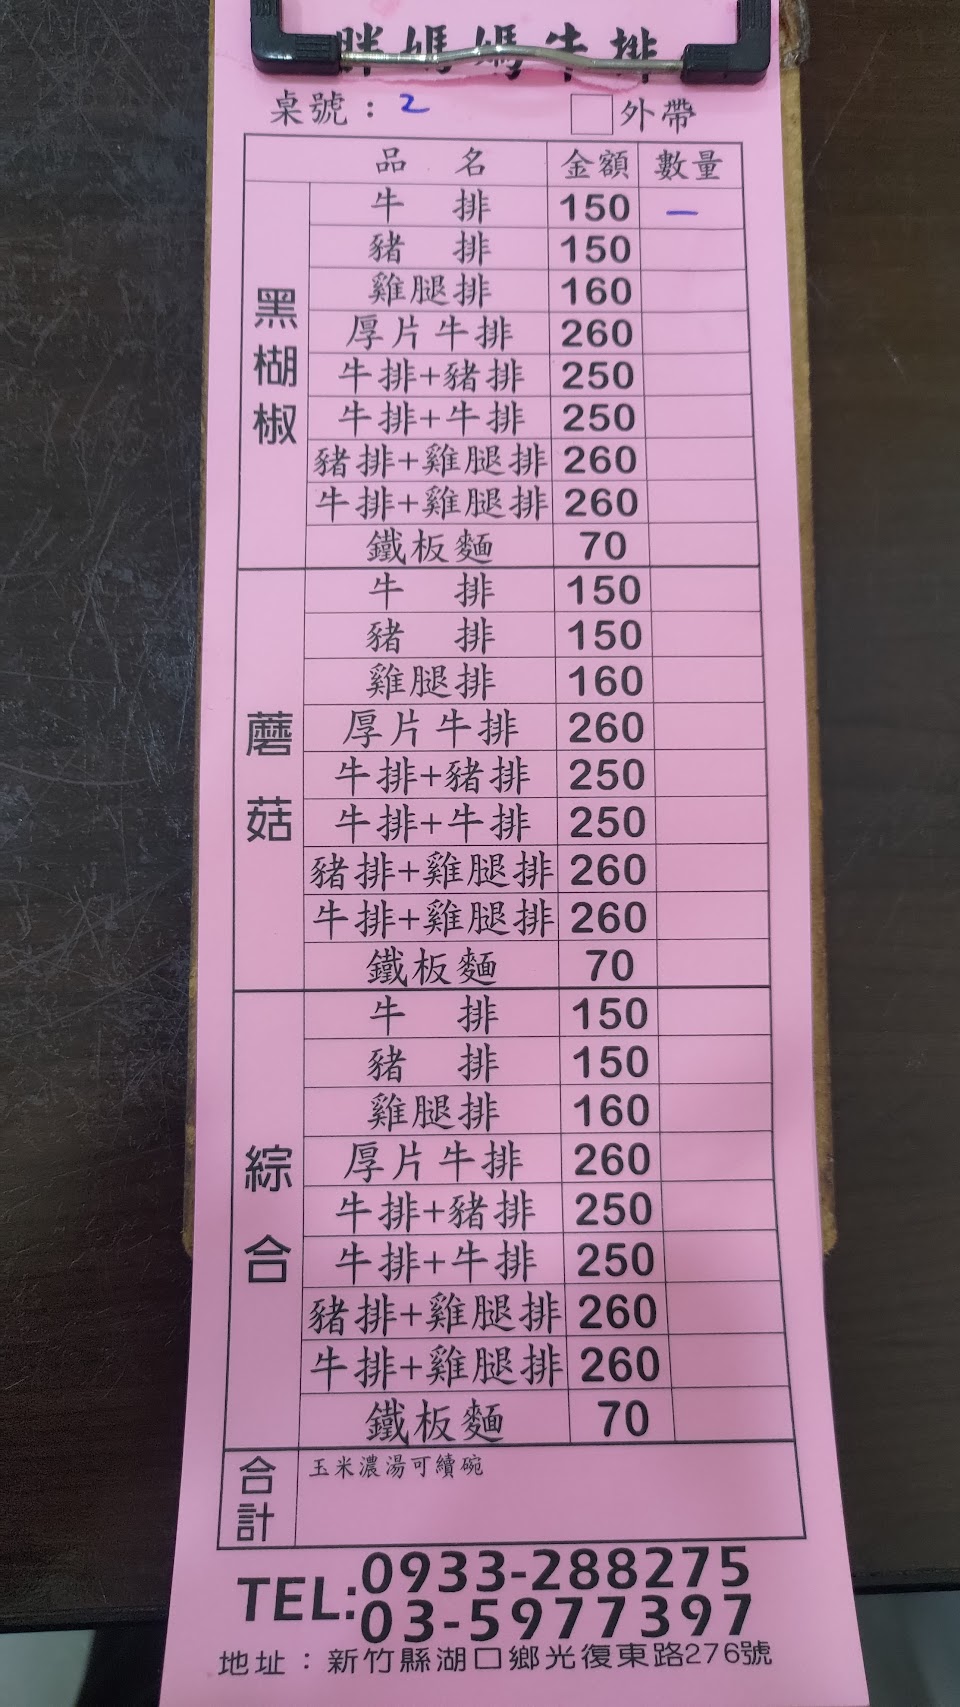 胖媽媽牛排
桌號：2 □外帶
品名 金額 數量
黑楜椒
牛排 150 一
豬排 150
雞腿排 160
厚片牛排 260
牛排+豬排 250
牛排+牛排 250
豬排+雞腿排 260
牛排+雞腿排 260
鐵板麵 70
蘑菇
牛排 150
豬排 150
雞腿排 160
厚片牛排 260
牛排+豬排 250
牛排+牛排 250
豬排+雞腿排 260
牛排+雞腿排 260
鐵板麵 70
綜合
牛排 150
豬排 150
雞腿排 160
厚片牛排 260
牛排+豬排 250
牛排+牛排 250
豬排+雞腿排 260
牛排+雞腿排 260
鐵板麵 70
合計 玉米濃湯可續碗
TEL:0933-288275
03-5977397
地址：新竹縣湖口鄉光復東路276號